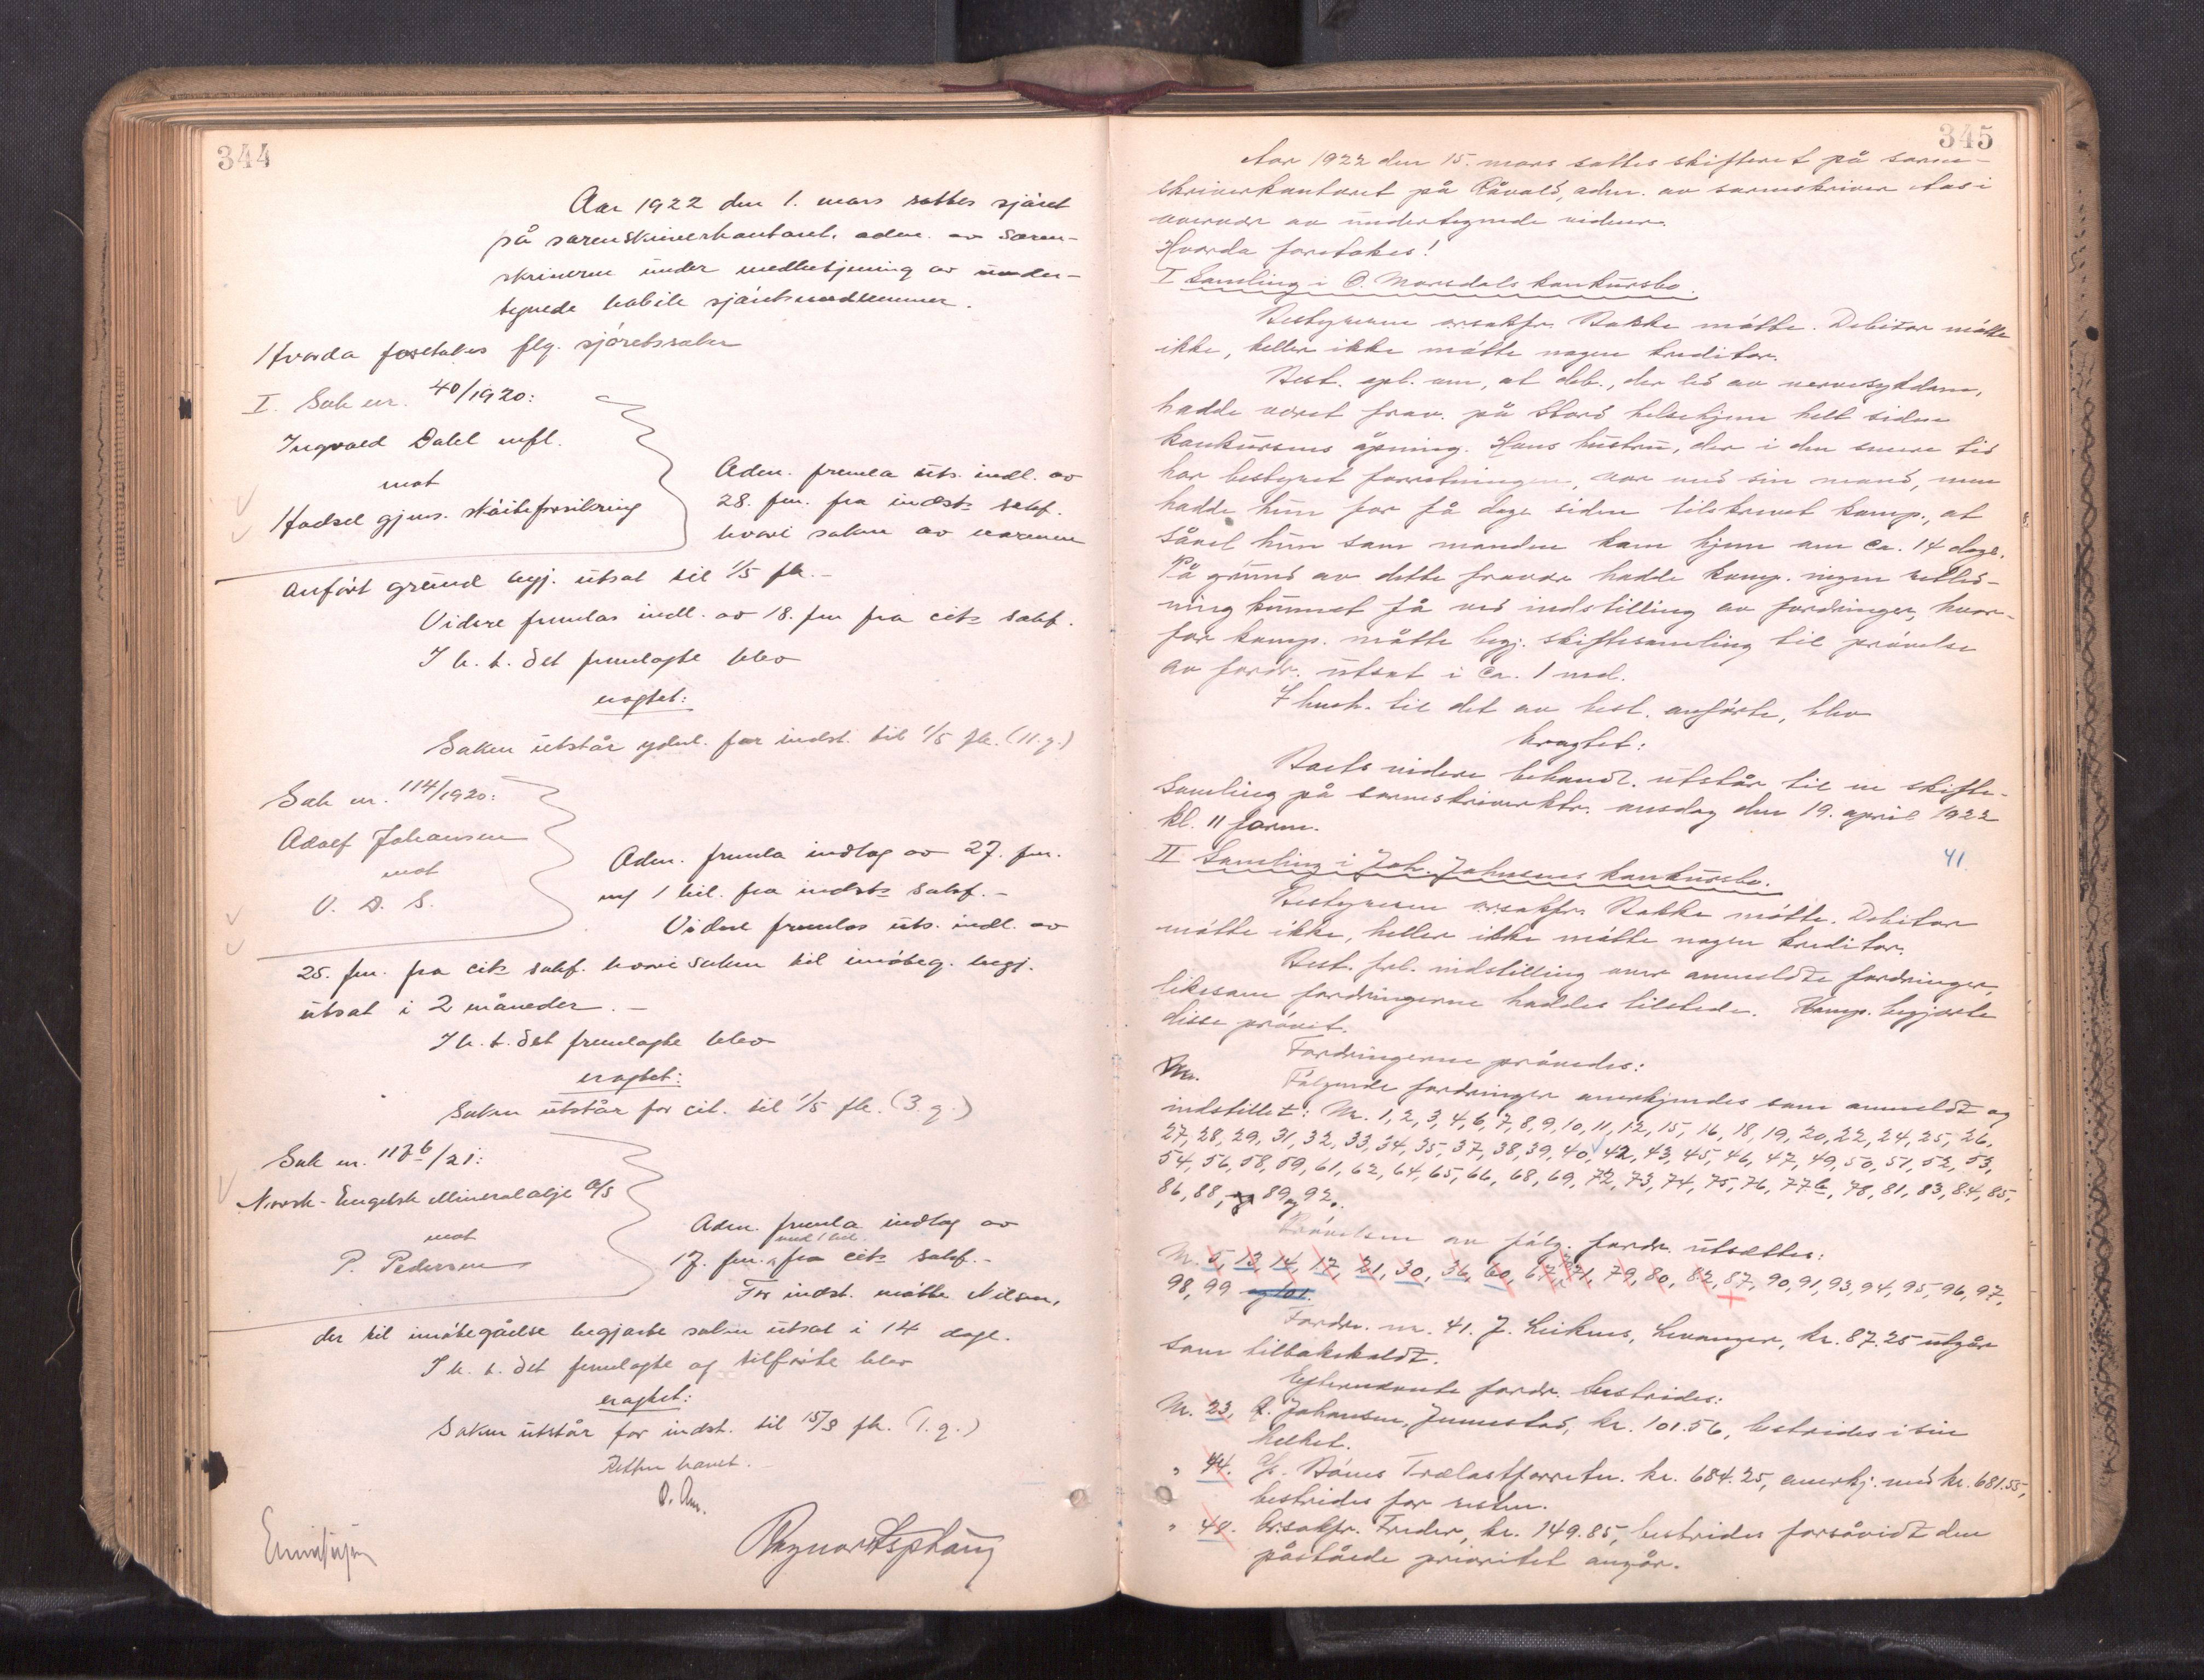 344
Aar 1922 den 1. mars sattes sjöret
på sorenskriverkontoret, adm. av soren-
skriveren under medbetjening av under-
tegnede habile sjöretsmedlemmer.
Hvorda foretokes flg. sjöretssaker
I. Sak nr. 40/1920:
Ingvald Dahl mfl.
mot
Hadsel gjens. sköiteforsikring
Adm. fremla uts. indl. av
28. fm. fra indst.s sakf.
hvori saken av nærmere
anfört grund begj. utsat til 1/5 fk. -
Videre fremlas indl. av 18. fm fra cits sakf.
I h. t. det fremlagte blev
eragtet:
Saken utstår yderl. for indst. til 1/5 fk. (11. g.)
Sak nr. 114/1920:
Adolf Johansen
mot
V. D. S.
Adm. fremla indlæg av 27. fm.
m/ 1 bil. fra indsts sakf. -
Videre fremlas uts. indl. av
25. fm. fra cits sakf. hvori saken til imöteg. begj.
utsat i 2 måneder. -
I h. t. det fremlagte blev
eragtet:
Saken utstår for cit. til 1/5 fk. (3. g.)
Sak nr. 117b/21:
Norsk-Engelsk Mineralolje A/S
mot
P. Pedersen
Adm. fremla indlæg av
med 1 bil.
17. fm. fra cits sakf. -
For indst. mötte Nilsen,
der til imötegåelse begjærte saken utsat i 14 dage.
I h. t. det fremlagte og tilförte blev
eragtet:
Saken utstår for indst. til 15/3 fk. (1. g.)
Retten hævet.
Ragnar Asphaug
345
Aar 1922 den 15. mars sattes skifteret på soren-
skriverkontoret på Råvold, adm. av sorenskriver
overvær av undertegnede vidner.
Hvorda foretokes!
I Samling i O. Marsdals konkursbo.
Bestyreren o.r.sakfr. Bakke mötte. Debitor mötte
ikke, heller ikke mötte nogen kreditor.
Best. opl. om, at deb., der led av nervesykdom,
hadde været frav. på Stord helsehjem helt siden
konkursens åpning. Hans hustru, der i den senere tid
har bestyret forretningen, var med sin mand, men
hadde hun for få dage siden tilskrevet komp., at
såvel hun som manden kom hjem om ca. 14 dage.
På grund av dette fravær hadde komp. ingen veiled-
ning kunnet få ved indstilling av fordringer, hvor-
for komp. måtte begj. skiftesamling til prövelse
av fordr. utsat i ca. 1 md.
I henh. til det av best. anförte, blev
eragtet:
Boets videre behandl. utstår til en skifte-
samling på sorenskriverktr. onsdag den 19. april 1922
kl. 11 form.
II Samling i Joh. Johnsens konkursbo.
41.
Bestyreren o.r.sakfr. Bakke mötte. Debitor
mötte ikke, heller ikke mötte nogen kreditor.
Best. frl. indstilling over anmeldte fordringer,
likesom fordringerne haddes tilstede. Komp. begjærte
disse prövet.
Fordringerne prövedes:
Nr. Fölgende fordringer anerkjendes som anmeldt og
indstillet: Nr. 1, 2, 3, 4, 6, 7, 8, 9, 10, 11, 12, 15, 16, 18, 19, 20, 22, 24, 25, 26,
27, 28, 29, 31, 32, 33, 34, 35, 37, 38, 39, 40, 42, 43, 45, 46, 47, 49, 50, 51, 52, 53,
54, 56, 58, 59, 61, 62, 64, 65, 66, 68, 69, 72, 73, 74, 75, 76, 77b, 78, 81, 83, 84, 85,
86, 88, 89 og 92.
Prövelsen av fölg. fordr. utsættes:
Nr. 5, 13, 14, 17, 21, 30, 36, 60, 67, 71, 79, 80, 82, 87, 90, 91, 93, 94, 95, 96, 97,
98, 99 og 101.
Fordr. nr. 41. J. Leiknes, Levanger, kr. 87.25 utgår
som tilbakekaldt.
Efternævnte fordr. bestrides:
Nr. 23. Johansen, Jennestad, kr. 101.56, bestrides i sin
helhet.
" 44. A/S. Böines Trælastforretn. kr. 684.25, anerkj. med kr. 681.55,
bestrides for resten.
" 48. O.r.sakfr. Freder, kr. 149.85, bestrides forsåvidt den
påståede prioritet angår.